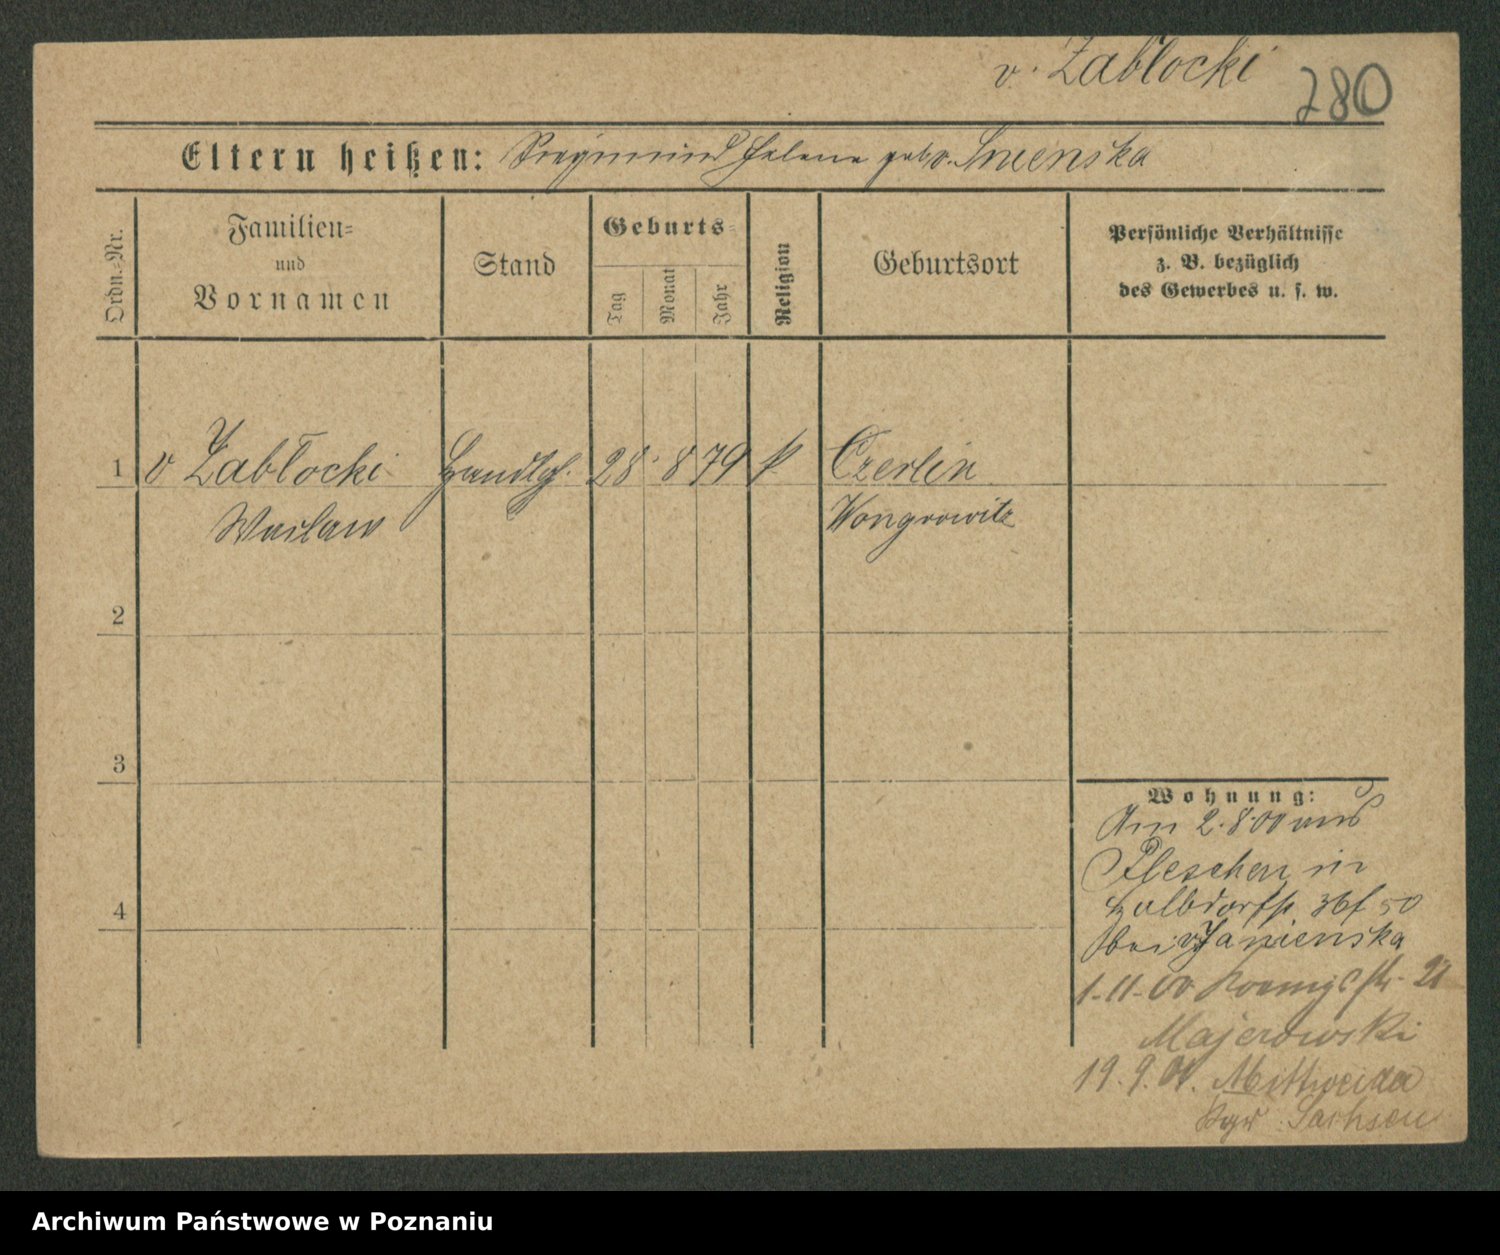 v. Zabłocki 280
Eltern heißen: Siegmund Helene geb v.
Ordn.-Nr.
Familien-
und
Vornamen
Stand
Geburts-
Tag
Monat
Jahr
Religion
Geburtsort
Persönliche Verhältnisse
z. B. bezüglich
des Gewerbes u. s. w.
1 v Zabłocki Handlgh. 28. 8 79 k Czerlin
Waclaw Wongrowitz
2
3
4
Wohnung:
Am 2.8.00 aus
Pleschen in
Halbdorfstr. 36
bei v
1-11-00 21
Majerowski
19.9.01. Mittweida
Kgr Sachsen
Archiwum Państwowe w Poznaniu